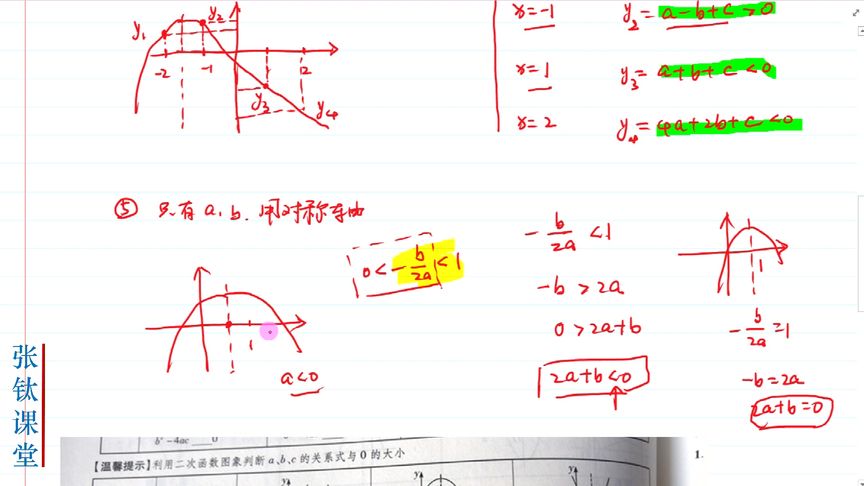 y₁ y₂
-2 -1 2
y₃ y₄
x=-1 y₂=a-b+c>0
x=1 y₃=a+b+c<0
x=2 y₄=4a+2b+c<0
⑤ 只有a、b、用对称车由
1
a<0
0<-b/2a<1
-b/2a<1
-b>2a
0>2a+b
2a+b<0
1
-b/2a=1
-b=2a
2a+b=0
张钛课堂
b²-4ac ____0
【温馨提示】利用二次函数图象判断a、b、c的关系式与0的大小
1.
y
y
y